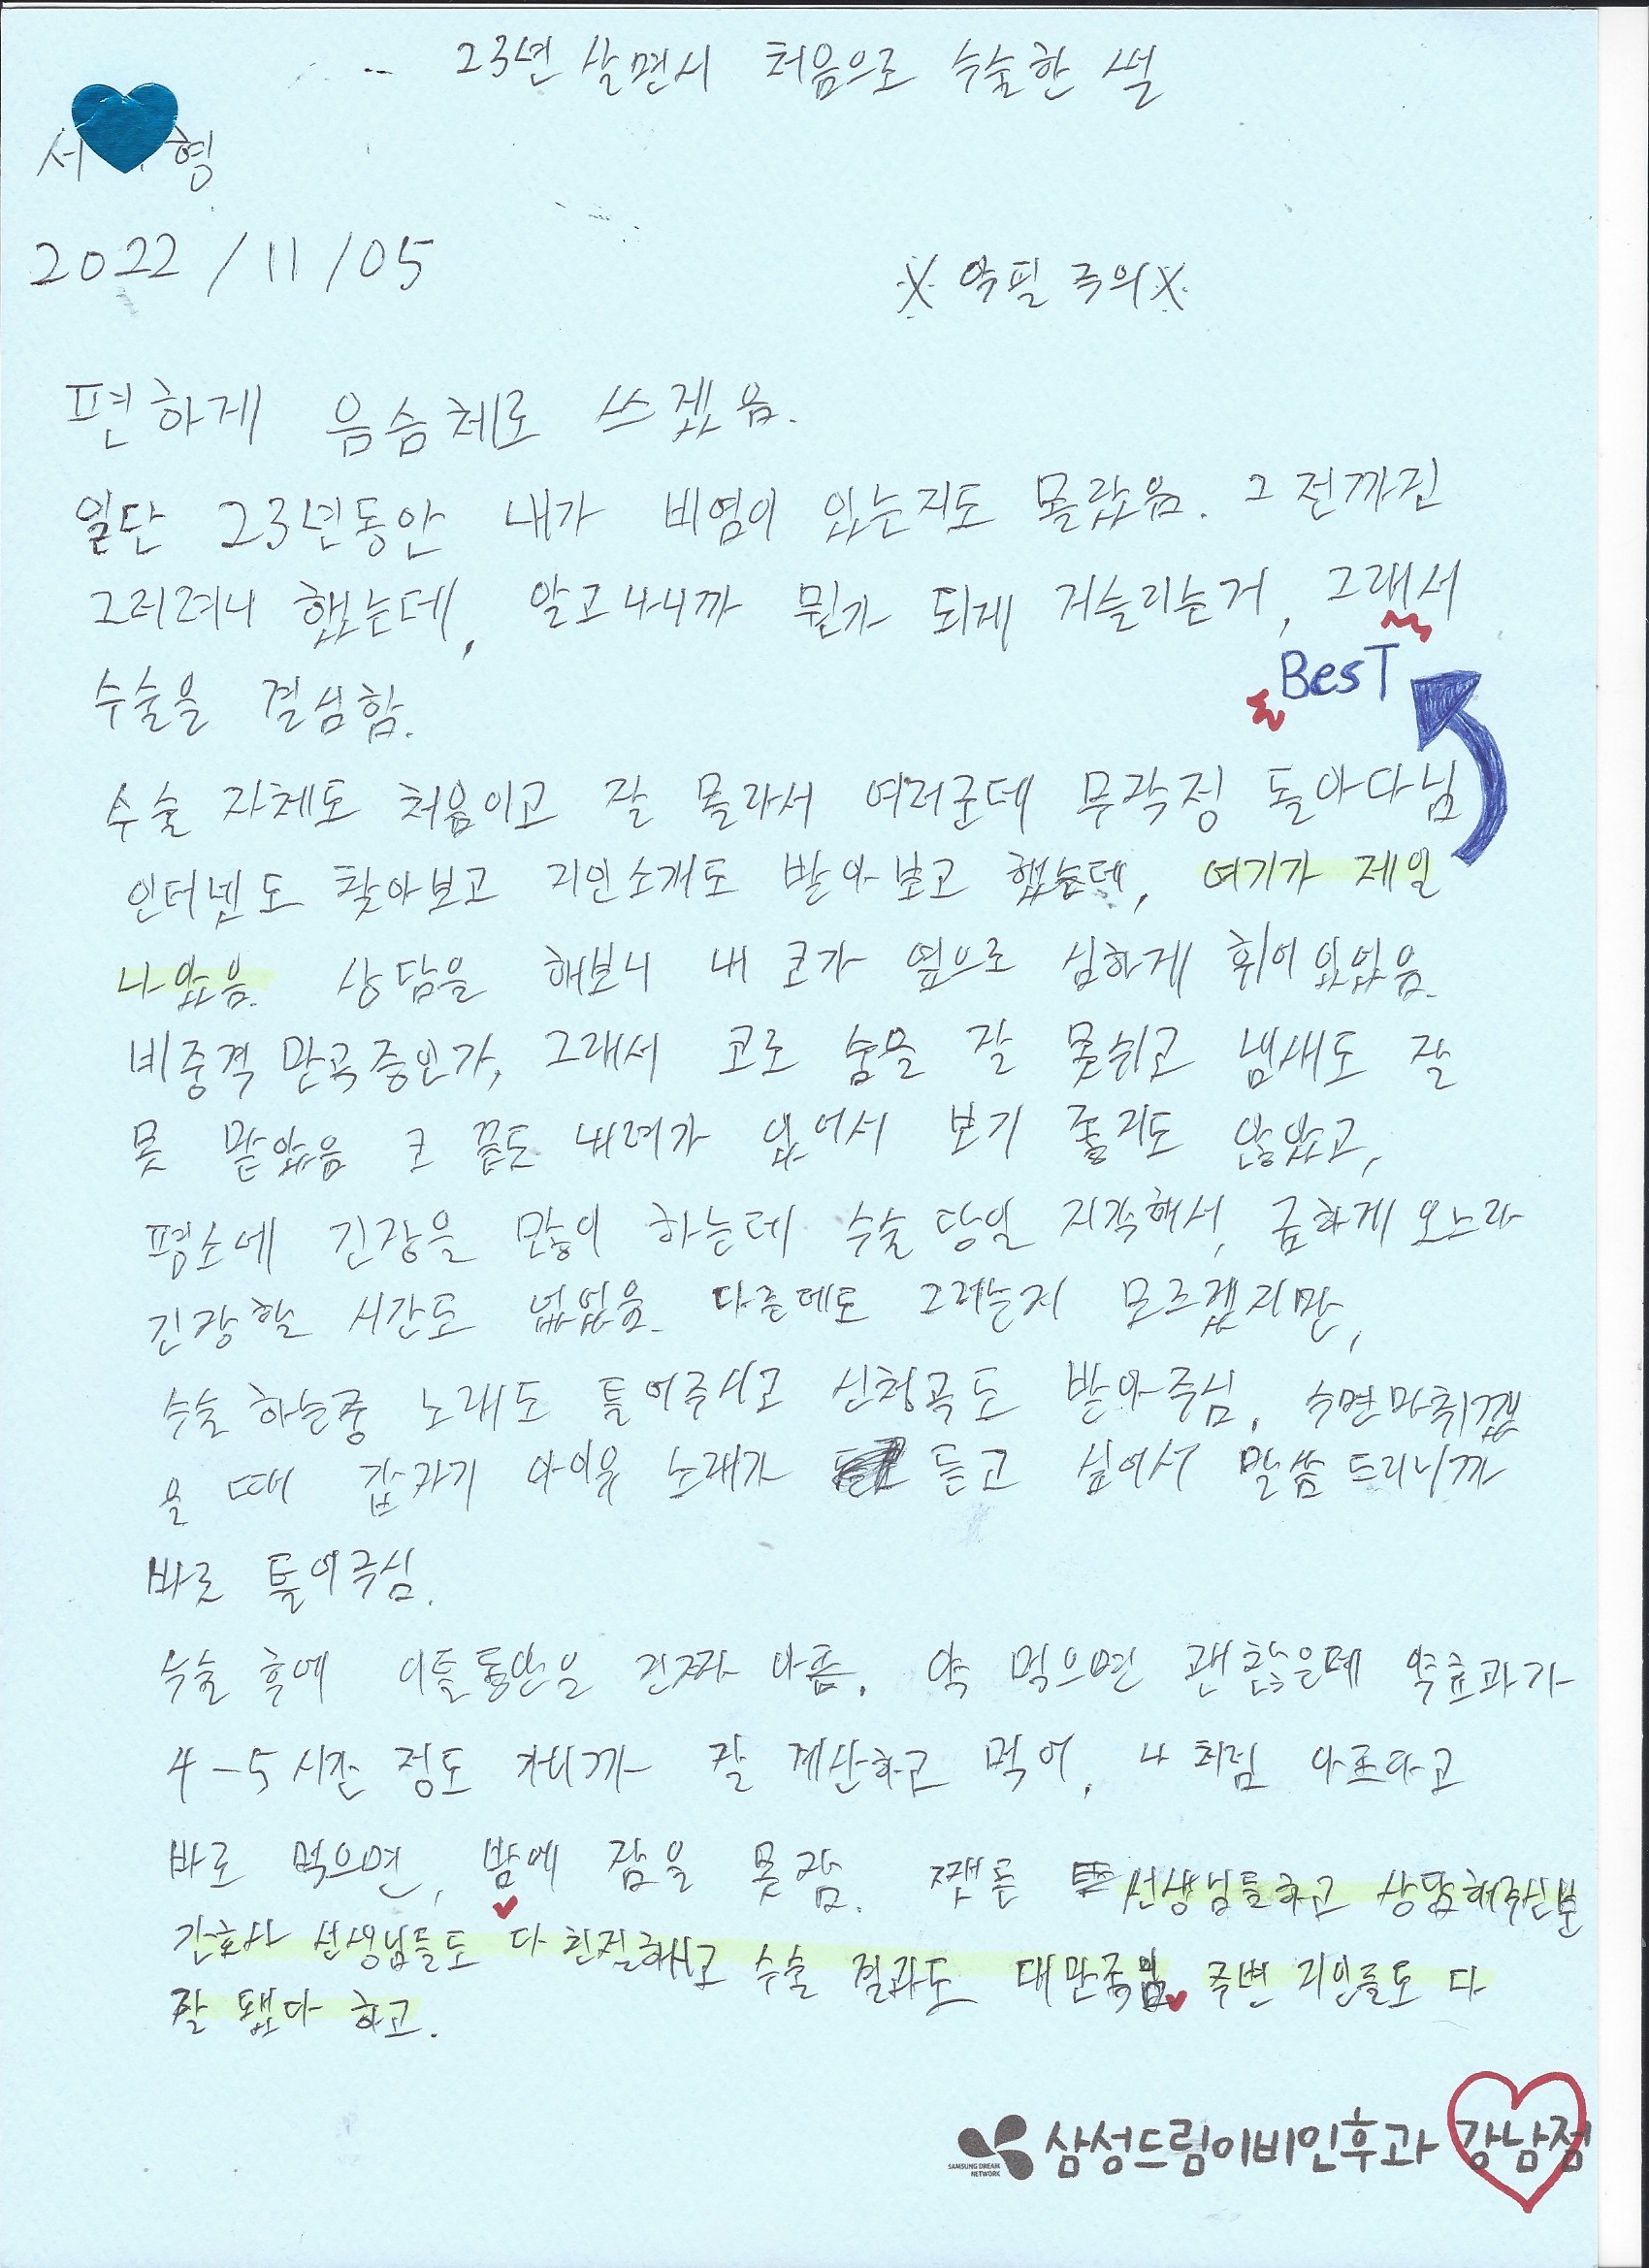 23년 살면서 처음으로 수술한 썰
서 형
2022/11/05
※ 악필 주의 ※
편하게 음슴체로 쓰겠음.
일단 23년동안 내가 비염이 있는지도 몰랐음. 그 전까진
그러려니 했는데, 알고나니까 뭔가 되게 거슬리는거, 그래서
수술을 결심함.
BesT
수술 자체도 처음이고 잘 몰라서 여러군데 무작정 돌아다님
인터넷도 찾아보고 지인소개도 받아보고 했는데, 여기가 제일
나았음. 상담을 해보니 내 코가 옆으로 심하게 휘어있었음.
비중격 만곡증인가, 그래서 코로 숨을 잘 못쉬고 냄새도 잘
못 맡았음 코 끝도 내려가 있어서 보기 좋지도 않았고,
평소에 긴장을 많이 하는데 수술 당일 지각해서, 급하게 오느라
긴장할 시간도 없었음. 다른데도 그러는지 모르겠지만,
수술 하는중 노래도 틀어주시고 신청곡도 받아주심. 수면마취깼
을 때 갑자기 아이유 노래가 듣고 싶어서 말씀드리니까
바로 틀어주심.
수술 후에 이틀동안은 진짜 아픔. 약 먹으면 괜찮은데 약효과가
4-5시간 정도 가니까 잘 계산하고 먹어, 나 처럼 아프다고
바로 먹으면, 밤에 잠을 못잠. 쨋든 선생님들하고 상담해주신분
간호사 선생님들도 다 친절하시고 수술 결과도 대만족임 주변 지인들도 다
잘 됐다 하고.
SAMSUNG DREAM
NETWORK
삼성드림이비인후과 강남점